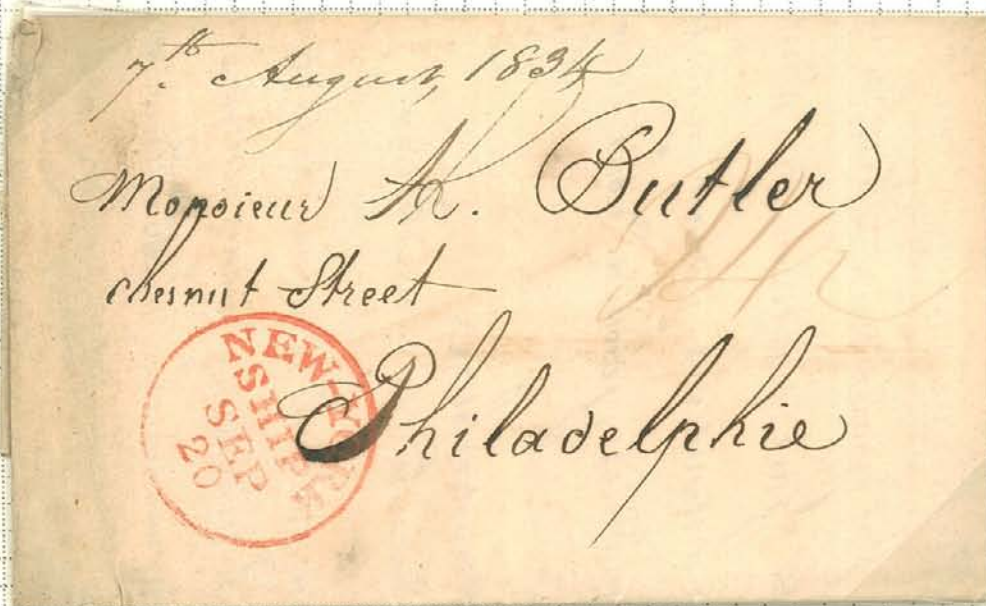 7th August, 1834
Monsieur Th. Butler
chesnut Street
Philadelphie
NEW-YORK
SHIP
SEP
20